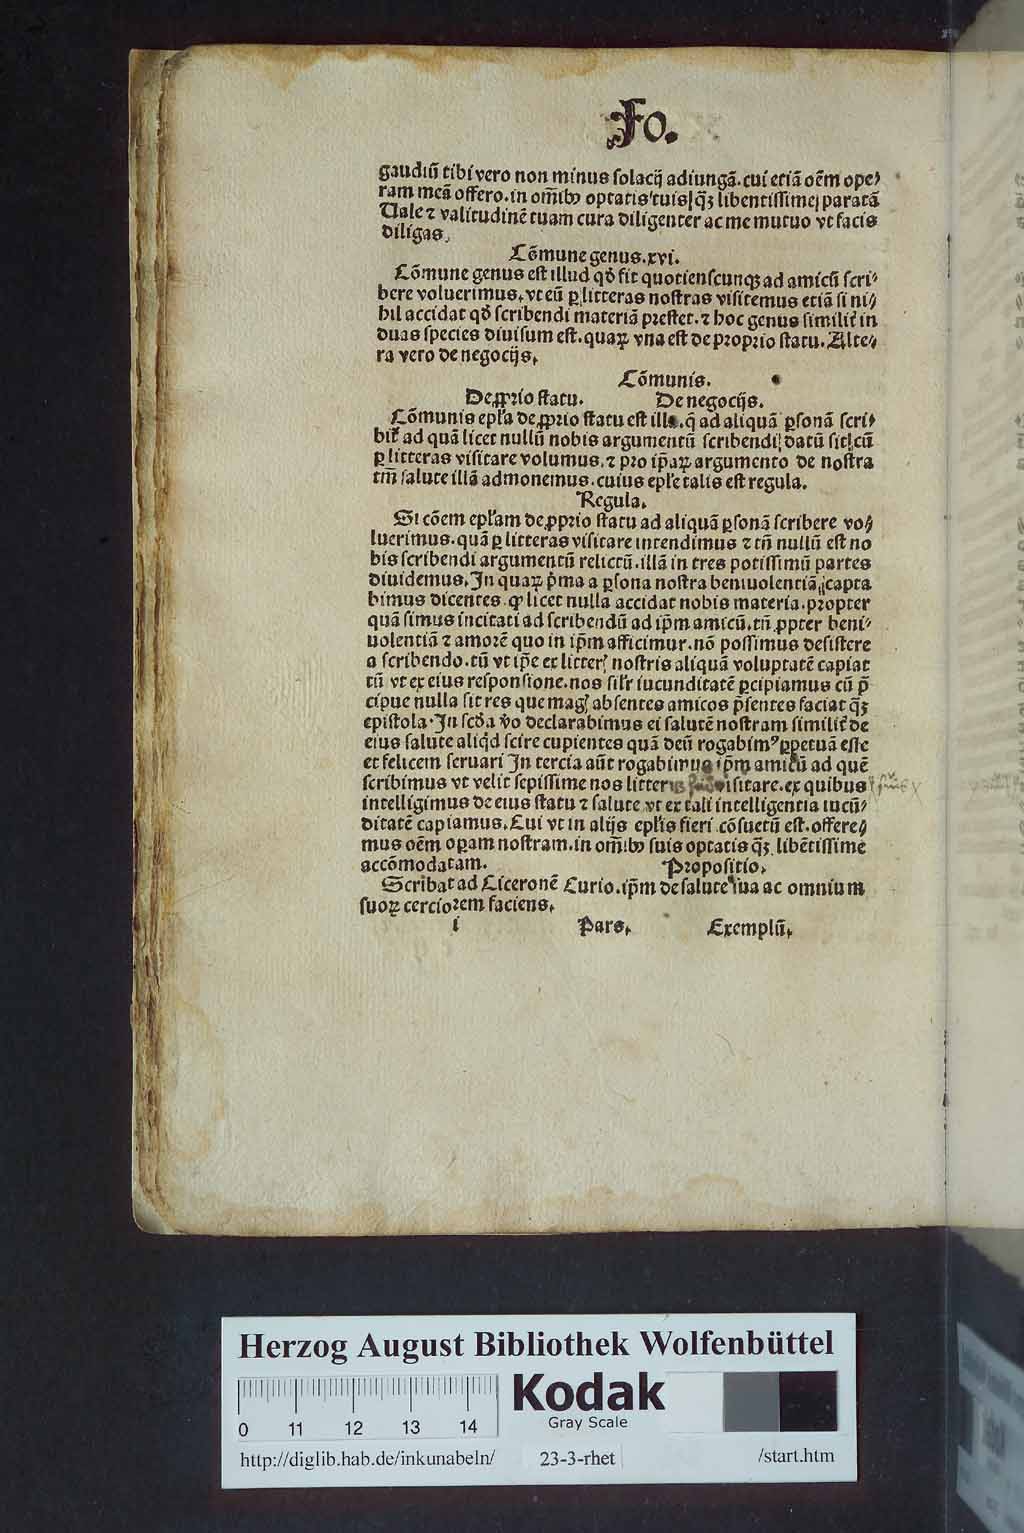 Fo.
gaudiū tibi vero non minus solacij adiungā. cui etiā oēm ope⸗
ram meā offero. in om̄ibꝰ optatis tuis qꝫ libentissime paratā
Vale ⁊ valitudinē tuam cura diligenter ac me mutuo vt facis
diligas.
Cōmune genus. xvi.
Cōmune genus est illud qḋ fit quotienscunqꝫ ad amicū scri⸗
bere voluerimus. vt eū ꝑ litteras nostras visitemus etiā si ni⸗
hil accidat qḋ scribendi materiā prestet. ⁊ hoc genus similiť in
duas species diuisum est. quaꝝ vna est de proprio statu. Alte⸗
ra vero de negocijs.
Cōmunis.
De ꝓprio statu. De negocijs.
Cōmunis epľa de ꝓprio statu est illa. q̄ ad aliquā ꝑsonā scri⸗
biť ad quā licet nullū nobis argumentū scribendi datū sit cū
ꝑ litteras visitare volumus. ⁊ pro ip̄aꝝ argumento de nostra
tm̄ salute illā admonemus. cuius epľe talis est regula.
Regula.
Si cōem epľam de ꝓprio statu ad aliquā ꝑsonā scribere vo⸗
luerimus. quā ꝑ litteras visitare intendimus ⁊ tn̄ nullū est no
bis scribendi argumentū relictū. illā in tres potissimū partes
diuidemus. In quaꝝ p̍ma a ꝑsona nostra beniuolentiā capta
bimus dicentes ꝙ licet nulla accidat nobis materia. propter
quā simus incitati ad scribendū ad ip̄m amicū. tn̄ ꝓpter beni⸗
uolentiā ⁊ amorē quo in ip̄m afficimur. nō possimus desistere
a scribendo. tū vt ip̄e ex litterꝭ nostris aliquā voluptatē capiat
tū vt ex eius responsione. nos siľr iucunditatē ꝑcipiamus cū p̄
cipue nulla sit res que magꝭ absentes amicos p̄sentes faciat qꝫ
epistola. In scḋa v̍o declarabimus ei salutē nostram similiť de
eius salute aliq̍d scire cupientes quā deū rogabimꝰ ꝑpetuā esse
et felicem seruari In tercia aūt rogabimus ip̄m amicū ad quē
scribimus vt velit sepissime nos litteris visitare. ex quibus
intelligimus de eius statu ⁊ salute vt ex tali intelligentia iucū⸗
ditatē capiamus. Cui vt in alijs epľis fieri cōsuetū est. offere⸗
mus oēm oꝑam nostram. in om̄ibꝰ suis optatis qꝫ libētissime
accōmodatam. Propositio.
Scribat ad Ciceronē Curio. ip̄m de salute sua ac omnium
suoꝝ cerciorem faciens.
i Pars. Exemplū.
Herzog August Bibliothek Wolfenbüttel
0 11 12 13 14
Kodak
Gray Scale
http://diglib.hab.de/inkunabeln/ 23-3-rhet /start.htm